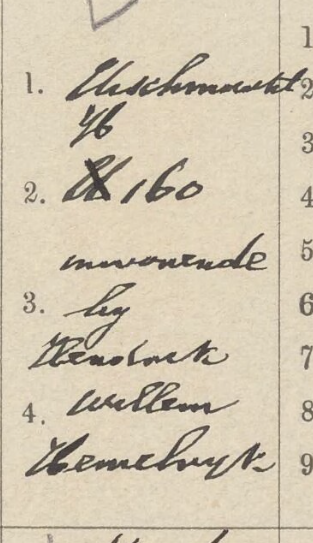 1. Vischmarkt
H
2. H 160
inwonende
3. by
Hendrick
4. Willem
Hemelryk
1
2
3
4
5
6
7
8
9